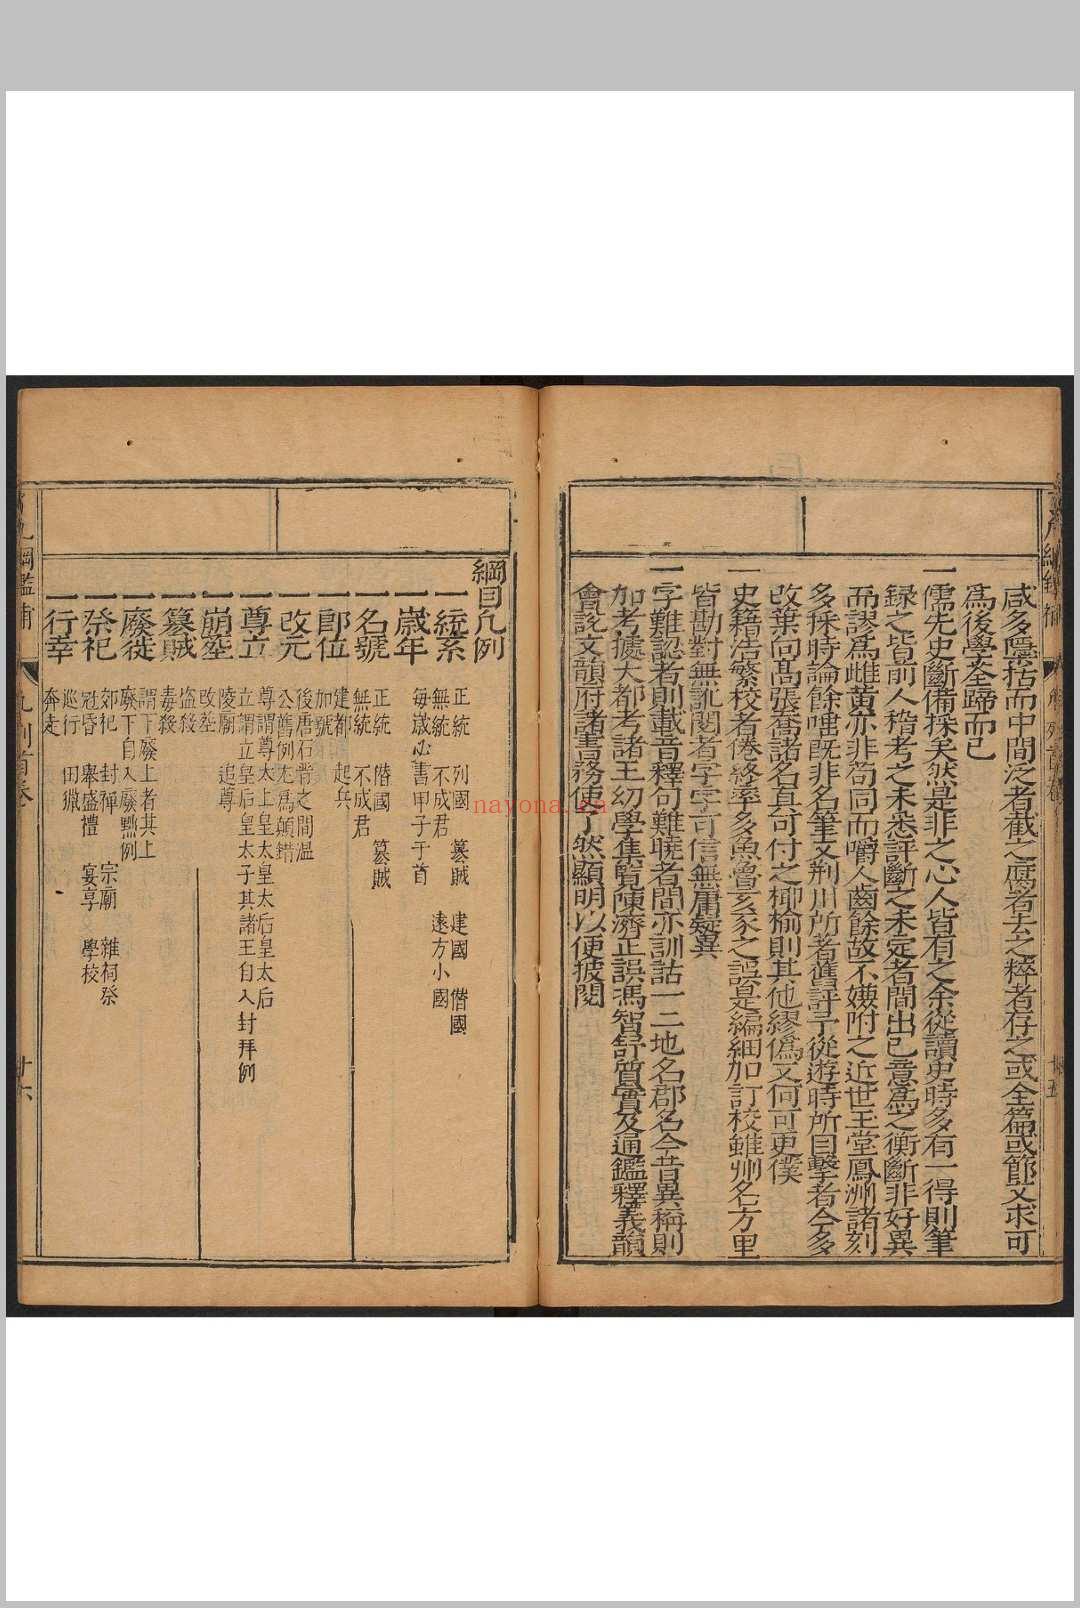 咸多隱括而中間泛者截之腐者去之粹者存之或全篇或節文求可
為後學筌蹄而已
一儒先史斷備採矣然是非之心人皆有之余從讀史時多有一得則筆
録之皆前人稽考之未悉評斷之未定者間出己意為之衡斷非好異
而謬為雌黄亦非苟同而嚼人齒餘故不嫌附之近世玉堂鳳洲諸刻
多採時論餘唾既非名筆文荆川所著舊評予從遊時所目擊者今多
改葉向髙張鼐諸名真可付之揶揄則其他繆偽又何可更僕
一史籍浩繁校者倦終率多魚魯亥豕之誤是編細加訂校雖州名方里
皆勘對無訛閱者字字可信無庸疑異
一字難認者則載音釋句難曉者間亦訓詁一二地名郡名今昔異稱則
加考據大都考諸王幼學集覽陳濟正誤馮智舒質實及通鑑釋義韻
會說文韻府諸書務使了然顯明以便披閱
綱目凡例
一統系
正統 列國 篡賊 建國 僭國
無統 不成君 遠方小國
一嵗年
毎嵗必書甲子于首
一名號
正統 僭國 篡賊
無統 不成君
一即位
建都 起兵
加號
一改元
後唐石晋之間温
公舊例尤為顛錯
一尊立
尊謂尊太上皇太皇太后皇太后
立謂立皇后皇太子其諸王自入封拜例
一崩塟
陵廟 追尊
改塟
一篡賊
盗殺
毒殺
一廢徙
謂下廢上者其上
廢下自入廢黜例
一祭祀
郊祀 封禪 宗廟 雜祠祭
冠昏 舉盛禮 宴享 學校
一行幸
巡行 田獵
奔走
綱鑑補
凡例首卷
廿六